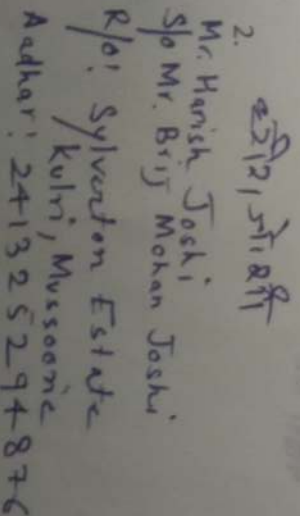 2.
Mr. Harish Joshi
S/o Mr. Brij Mohan Joshi
R/o: Sylverton Estate
Kulri, Mussoorie
Aadhar: 241325294876